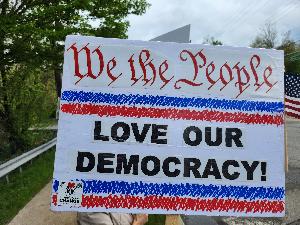 We the People
LOVE OUR
DEMOCRACY!